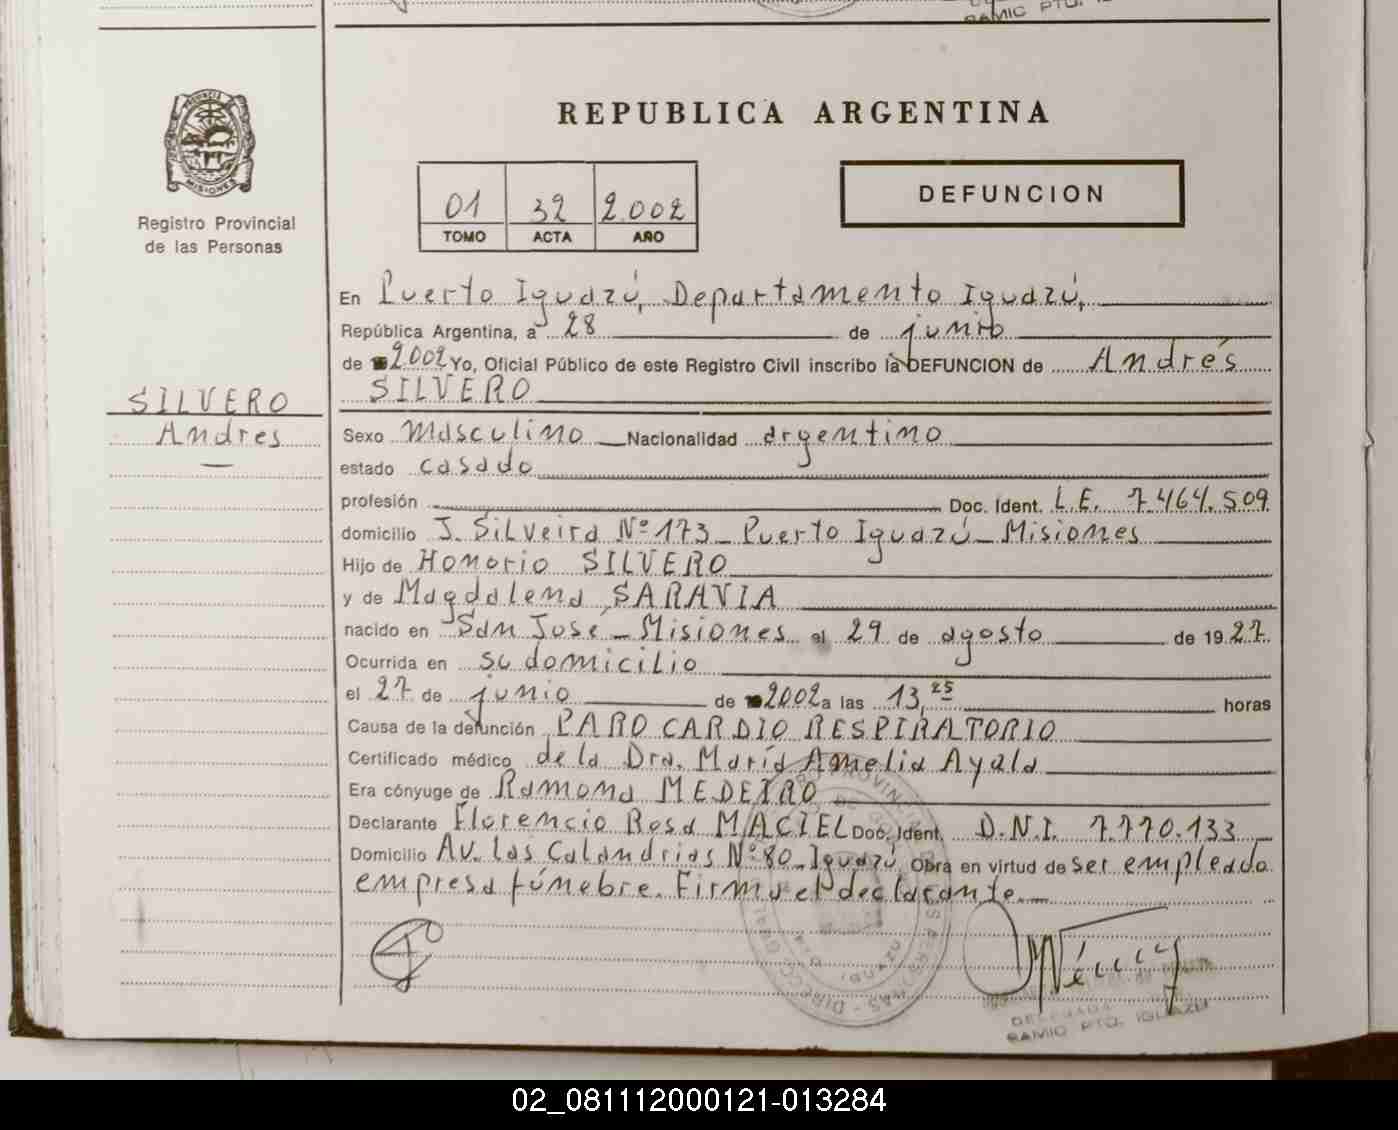 RAMIC PTO.
REPUBLICA ARGENTINA
PROVINCIA DE
MISIONES
Registro Provincial
de las Personas
01 32 2.002
TOMO ACTA AÑO
DEFUNCION
En Puerto Iguazú, Departamento Iguazú,
República Argentina, a 28 de junio
de 2002 Yo, Oficial Público de este Registro Civil inscribo la DEFUNCION de Andrés
SILVERO
SILVERO
Andres
Sexo masculino Nacionalidad argentino
estado casado
profesión Doc. Ident. L.E. 7.464.509
domicilio J. Silveira Nº 173_ Puerto Iguazú_ Misiones
Hijo de Honorio SILVERO
y de Magdalena SARAVIA
nacido en San José_ Misiones el 29 de agosto de 1927.
Ocurrida en su domicilio
el 27 de junio de 2002 a las 13,25 horas
Causa de la defunción PARO CARDIO RESPIRATORIO
Certificado médico de la Dra. María Amelia Ayala
Era cónyuge de Ramona MEDEIRO
Declarante Florencio Rosa MACIEL Doc. Ident. D.N.I. 7.770.133
Domicilio Av. Las Calandrias Nº 80_ Iguazú, Obra en virtud de ser empleado
empresa fúnebre. Firma el declarante._
DELEGADA
RAMIC PTO. IGUAZU
02_081112000121-013284